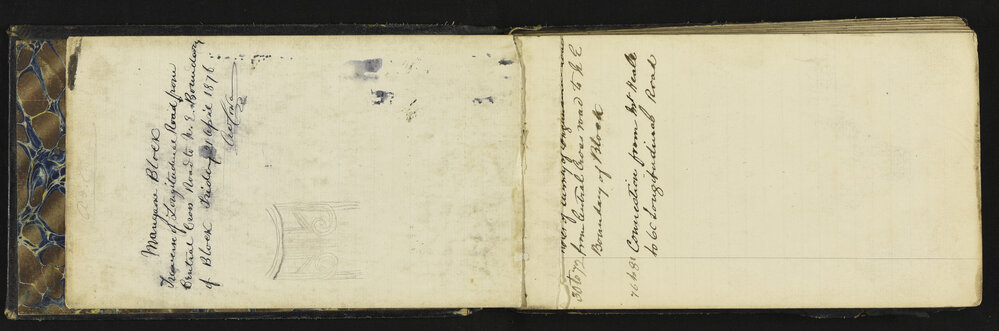 Mangaone Block
Traverse of Longitudinal Road from
Central Cross Road to N. E. Boundary
of Block Friday April 1876
30 to 70 from Central Cross road to N E
Boundary of Block
76 to 81 Connection from
to Longitudinal Road